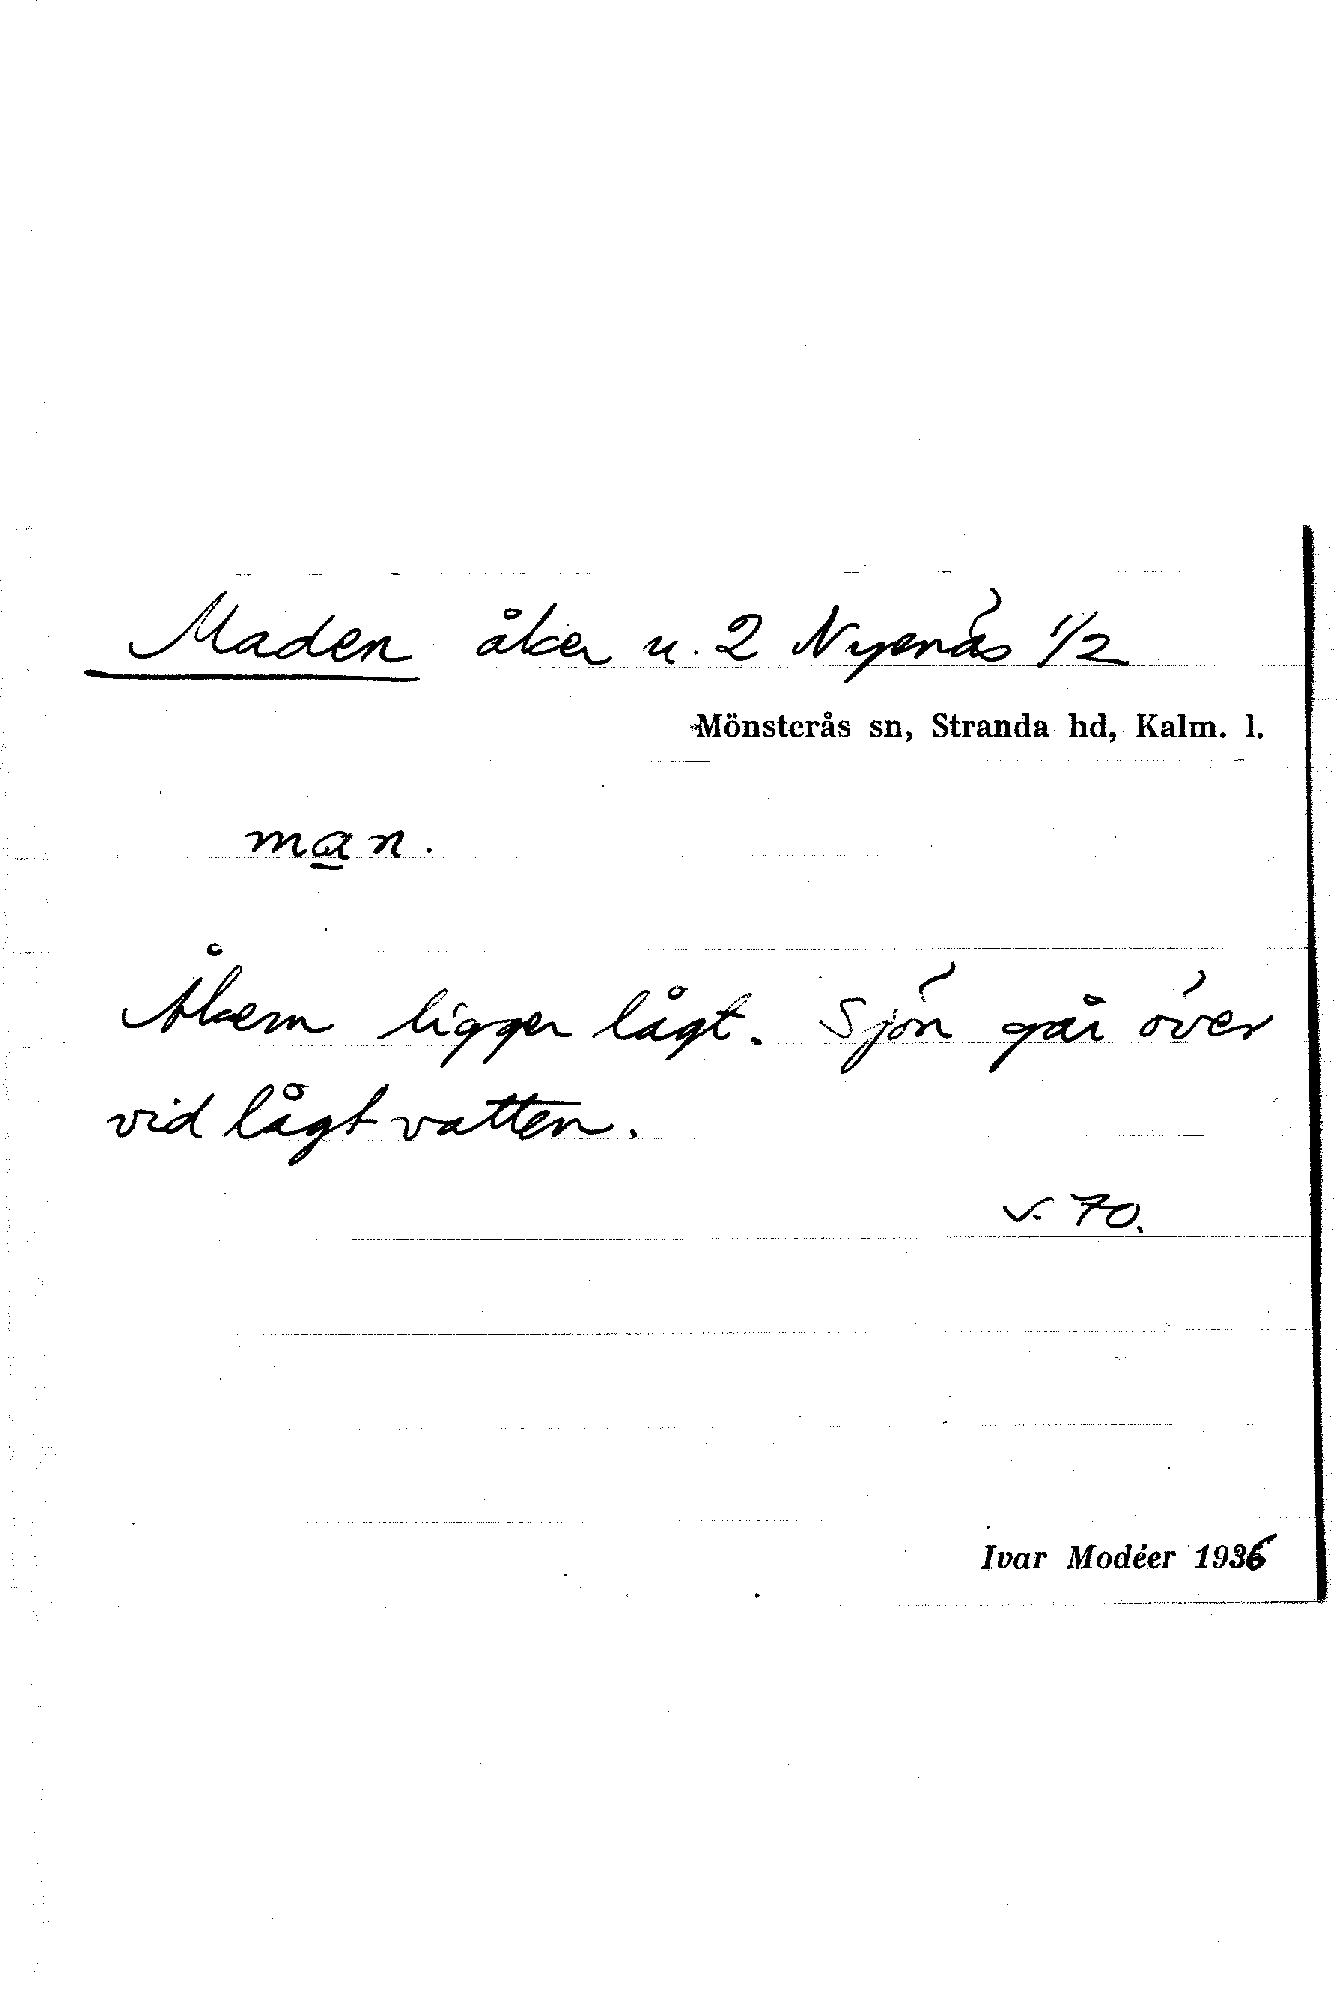 Maden åker u. 2 Nyenäs 1/2
Mönsterås sn, Stranda hd, Kalm. l.
man.
Åkern ligger lågt. Sjön går över
vid lågt vatten.
s. 70.
Ivar Modéer 1936